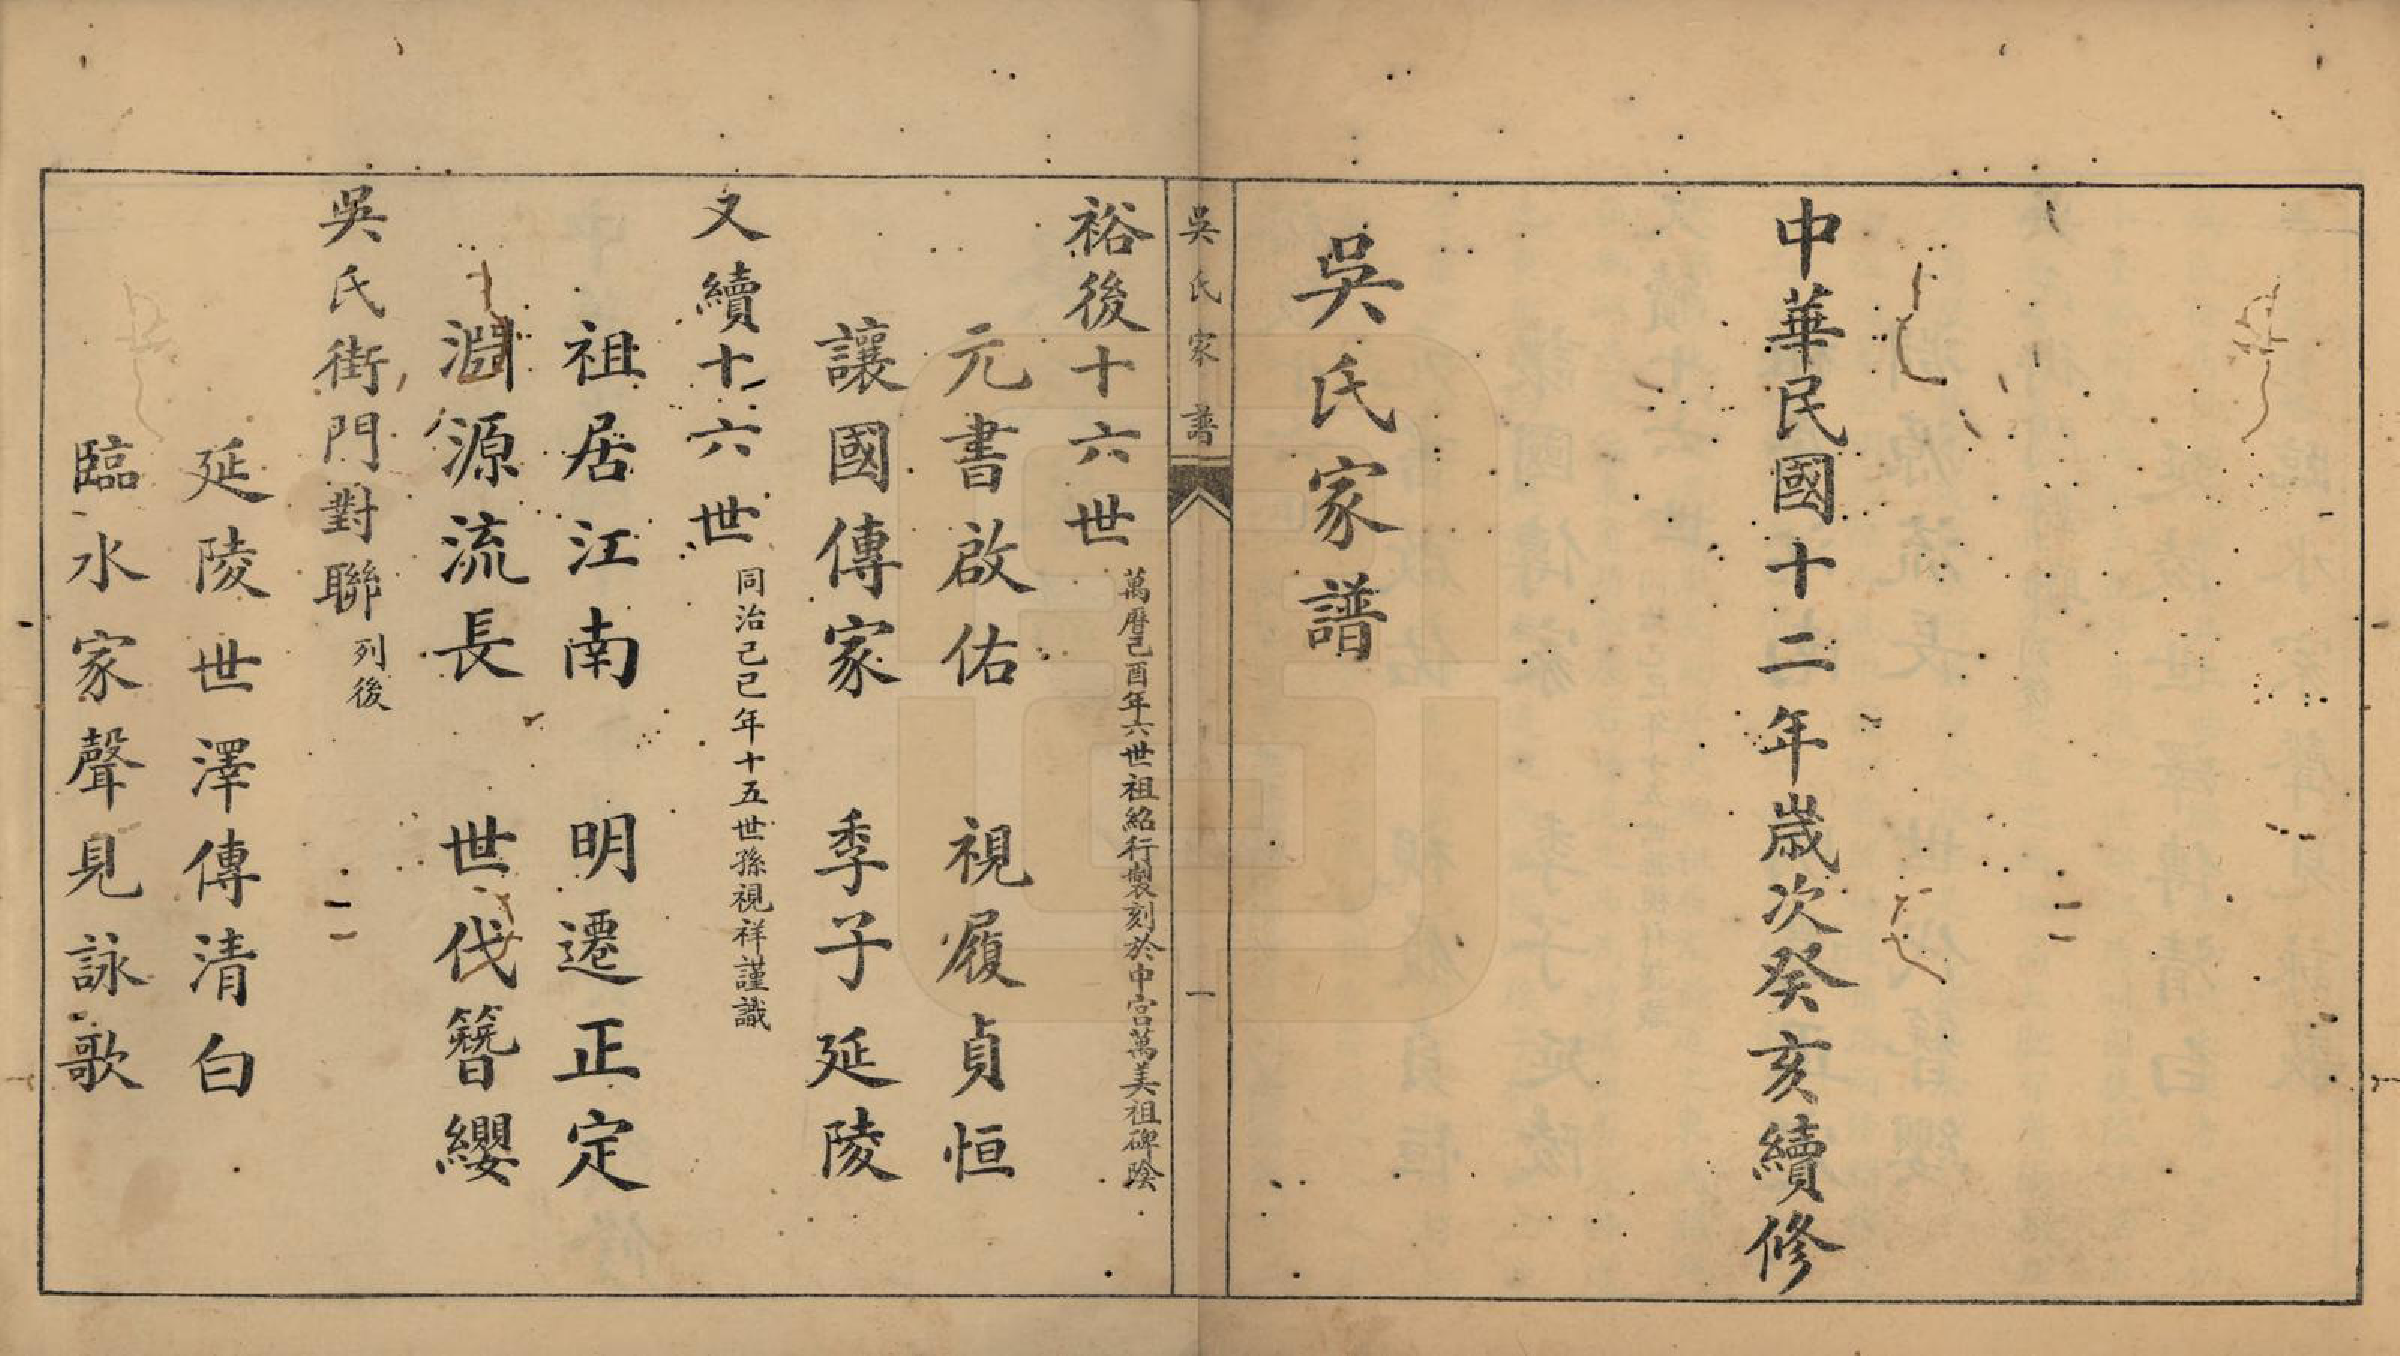 中華民國十二年歲次癸亥續修
吳氏家譜
吳氏家譜 一
裕後十六世 萬曆己酉年六世祖紹行製刻於中宮萬美祖碑陰
元書啟佑 視履貞恒
讓國傳家 季子延陵
又續十六世 同治己巳年十五世孫視祥謹識
祖居江南 明遷正定
淵源流長 世代簪纓
吳氏街門對聯 列後
延陵世澤傳清白
臨水家聲見詠歌